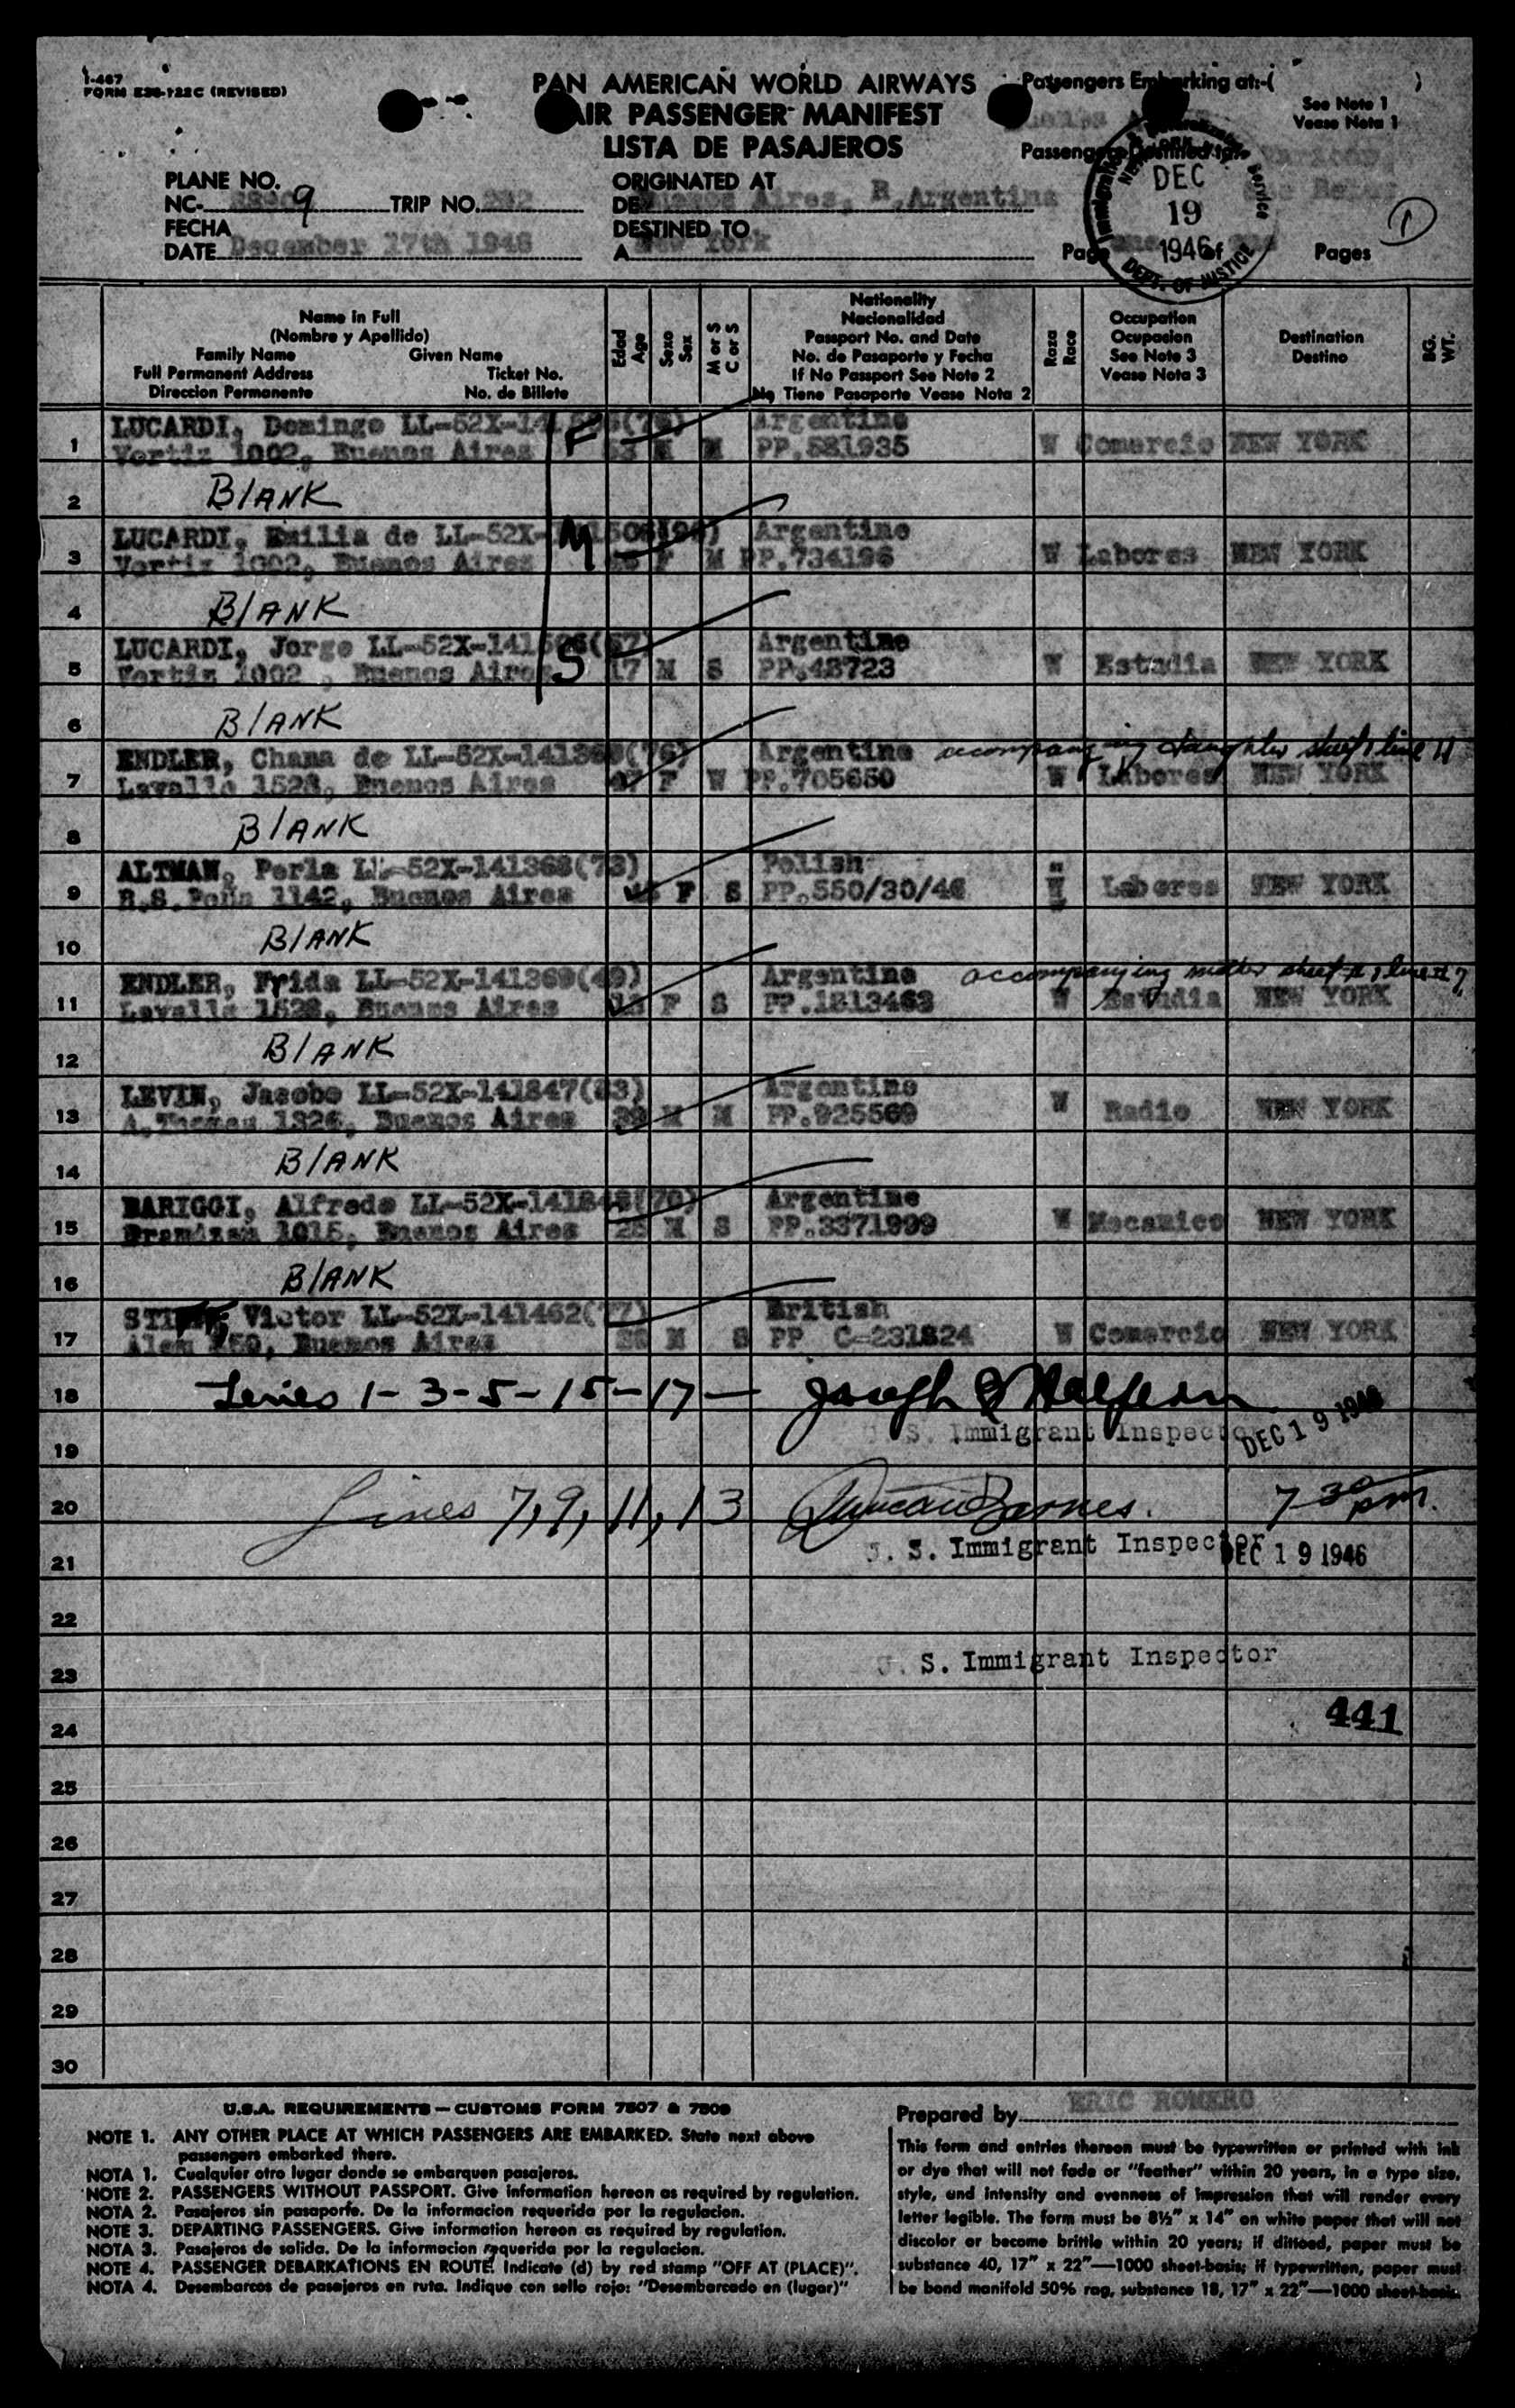 I-467
FORM E30-122C (REVISED)
PAN AMERICAN WORLD AIRWAYS
AIR PASSENGER MANIFEST
LISTA DE PASAJEROS
Passengers Embarking at:-( )
See Note 1
Vease Nota 1
Passengers Destined to
PLANE NO.
NC- 9 TRIP NO. 202
FECHA
DATE December 17th 1946
ORIGINATED AT
DE Buenos Aires, R. Argentina
DESTINED TO
A New York
Immigration Service
DEC
19
1946
DEPT. OF JUSTICE
Page of Pages
1
Name in Full
(Nombre y Apellido)
Family Name Given Name
Full Permanent Address Ticket No.
Direccion Permanente No. de Billete
Edad
Age
Sexo
Sex
M or S
C or S
Nationality
Nacionalidad
Passport No. and Date
No. de Pasaporte y Fecha
If No Passport See Note 2
No Tiene Pasaporte Vease Nota 2
Raza
Race
Occupation
Ocupasion
See Note 3
Vease Nota 3
Destination
Destino
BG.
WT.
LUCARDI, Domingo LL-52X- F Argentine
1 Vertiz 1002, Buenos Aires 53 M M PP.581935 W Comercio NEW YORK
2 BLANK
LUCARDI, Emilia de LL-52X- M Argentine
3 Vertiz 1002, Buenos Aires F M PP.734196 W Labores NEW YORK
4 BLANK
LUCARDI, Jorge LL-52X-141506(57) S Argentine
5 Vertiz 1002, Buenos Aires 17 M S PP.48723 W Estudia NEW YORK
6 BLANK
ENDLER, Chana de LL-52X-141368(76) Argentine accompanying daughter sheet 1 line 11
7 Lavalle 1528, Buenos Aires 47 F W PP.705650 W Labores NEW YORK
8 BLANK
ALTMAN, Perla LL-52X-141368(73) Polish
9 R.S.Peña 1142, Buenos Aires F S PP.550/30/46 W Labores NEW YORK
10 BLANK
ENDLER, Frida LL-52X-141369(49) Argentine accompanying mother sheet 1, line #7
11 Lavalle 1528, Buenos Aires 13 F S PP.1813463 W Estudia NEW YORK
12 BLANK
LEVIN, Jacobo LL-52X-141847(83) Argentine
13 Buenos Aires 39 M M PP.925569 W Radio NEW YORK
14 BLANK
BARIGGI, Alfredo LL-52X-141848(70) Argentine
15 1015, Buenos Aires 28 M S PP.3371999 W Mecanico NEW YORK
16 BLANK
Victor LL-52X-141462(77) British
17 Alem 250, Buenos Aires M S PP C-231824 W Comercio NEW YORK
18 Lines 1-3-5-15-17- Joseph
19 S. Immigrant Inspector DEC 19 1946
20 Lines 7, 9, 11, 13 Duncan Barnes. 7 30 pm.
21 U. S. Immigrant Inspector DEC 19 1946
22
23 U. S. Immigrant Inspector
24 441
25
26
27
28
29
30
U.S.A. REQUIREMENTS — CUSTOMS FORM 7507 & 7509
NOTE 1. ANY OTHER PLACE AT WHICH PASSENGERS ARE EMBARKED. State next above
passengers embarked there.
NOTA 1. Cualquier otro lugar donde se embarquen pasajeros.
NOTE 2. PASSENGERS WITHOUT PASSPORT. Give information hereon as required by regulation.
NOTA 2. Pasajeros sin pasaporte. De la informacion requerida por la regulacion.
NOTE 3. DEPARTING PASSENGERS. Give information hereon as required by regulation.
NOTA 3. Pasajeros de salida. De la informacion requerida por la regulacion.
NOTE 4. PASSENGER DEBARKATIONS EN ROUTE. Indicate (d) by red stamp "OFF AT (PLACE)".
NOTA 4. Desembarcos de pasajeros en ruta. Indique con sello rojo: "Desembarcado en (lugar)"
Prepared by ERIC ROMERO
This form and entries thereon must be typewritten or printed with ink
or dye that will not fade or "feather" within 20 years, in a type size,
style, and intensity and evenness of impression that will render every
letter legible. The form must be 8½" x 14" on white paper that will not
discolor or become brittle within 20 years; if dittoed, paper must be
substance 40, 17" x 22"—1000 sheet-basis; if typewritten, paper must
be bond manifold 50% rag, substance 18, 17" x 22"—1000 sheet-basis.